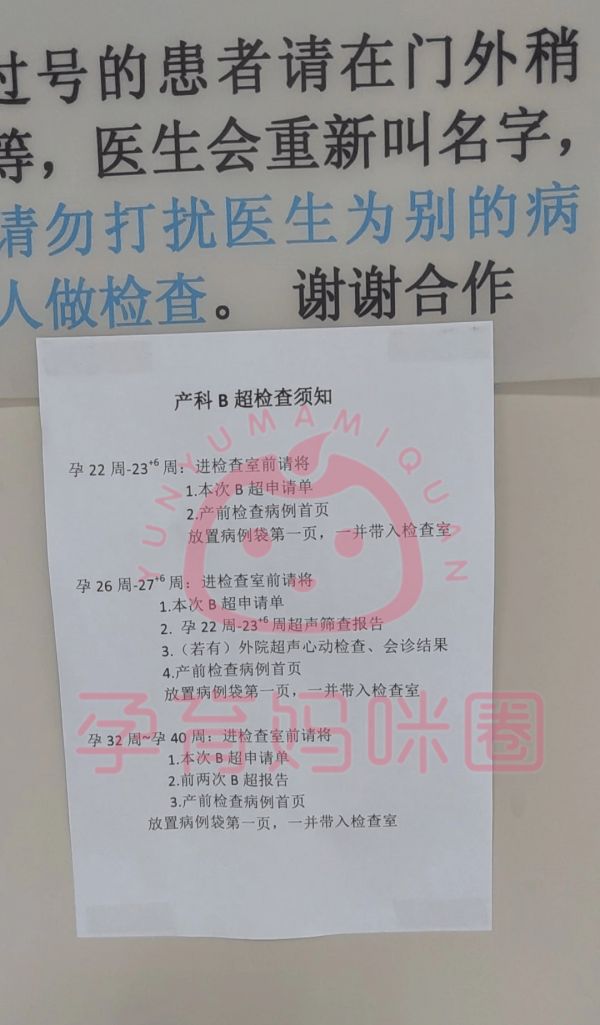 过号的患者请在门外稍
等，医生会重新叫名字，
请勿打扰医生为别的病
人做检查。 谢谢合作
产科 B 超检查须知
YUNYUMAMIQUAN
孕 22 周-23⁺⁶周：进检查室前请将
1.本次 B 超申请单
2.产前检查病例首页
放置病例袋第一页，一并带入检查室
孕 26 周-27⁺⁶周：进检查室前请将
1.本次 B 超申请单
2. 孕 22 周-23⁺⁶周超声筛查报告
3.（若有）外院超声心动检查、会诊结果
4.产前检查病例首页
放置病例袋第一页，一并带入检查室
孕育妈咪圈
孕 32 周~孕 40 周：进检查室前请将
1.本次 B 超申请单
2.前两次 B 超报告
3.产前检查病例首页
放置病例袋第一页，一并带入检查室